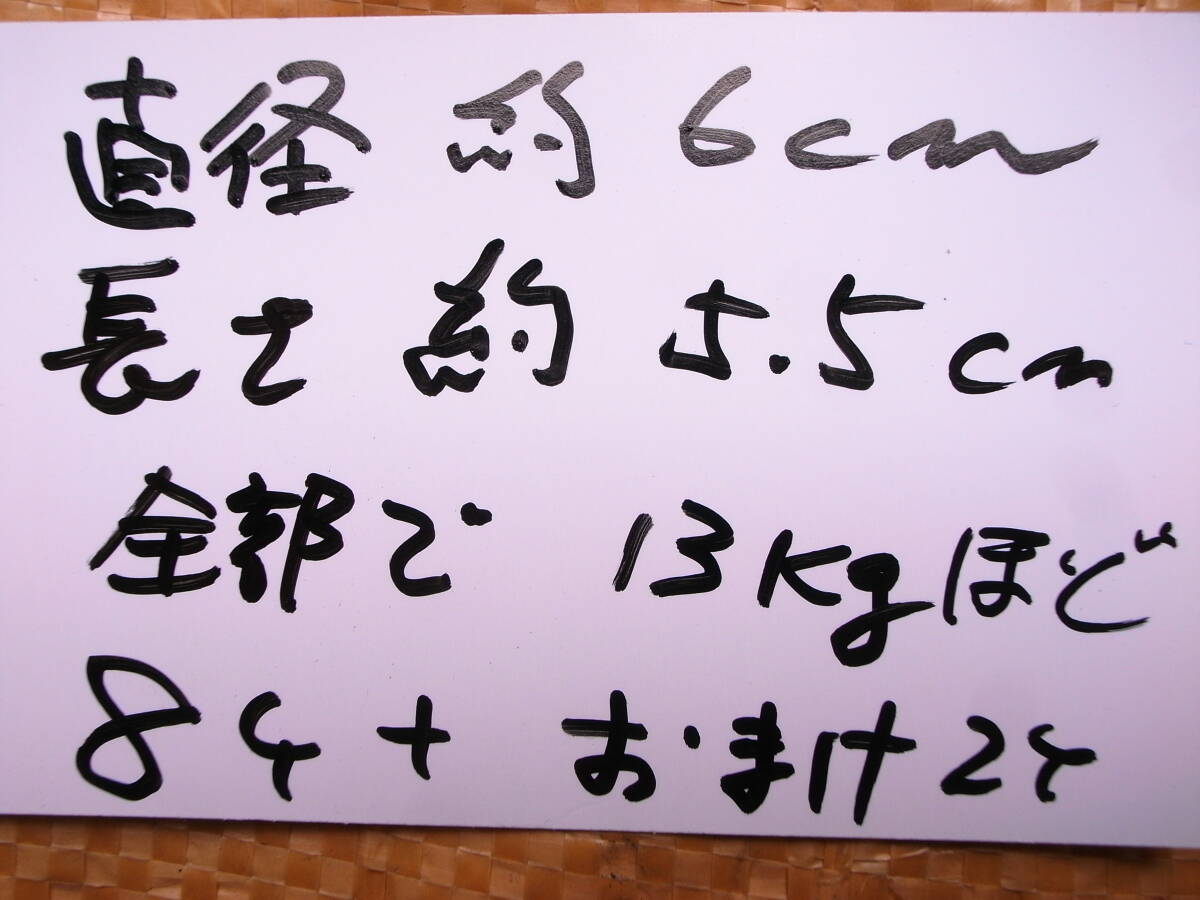 直径 約 6cm
長さ 約 5.5cm
全部で 13Kgほど
8ケ + おまけ2ケ